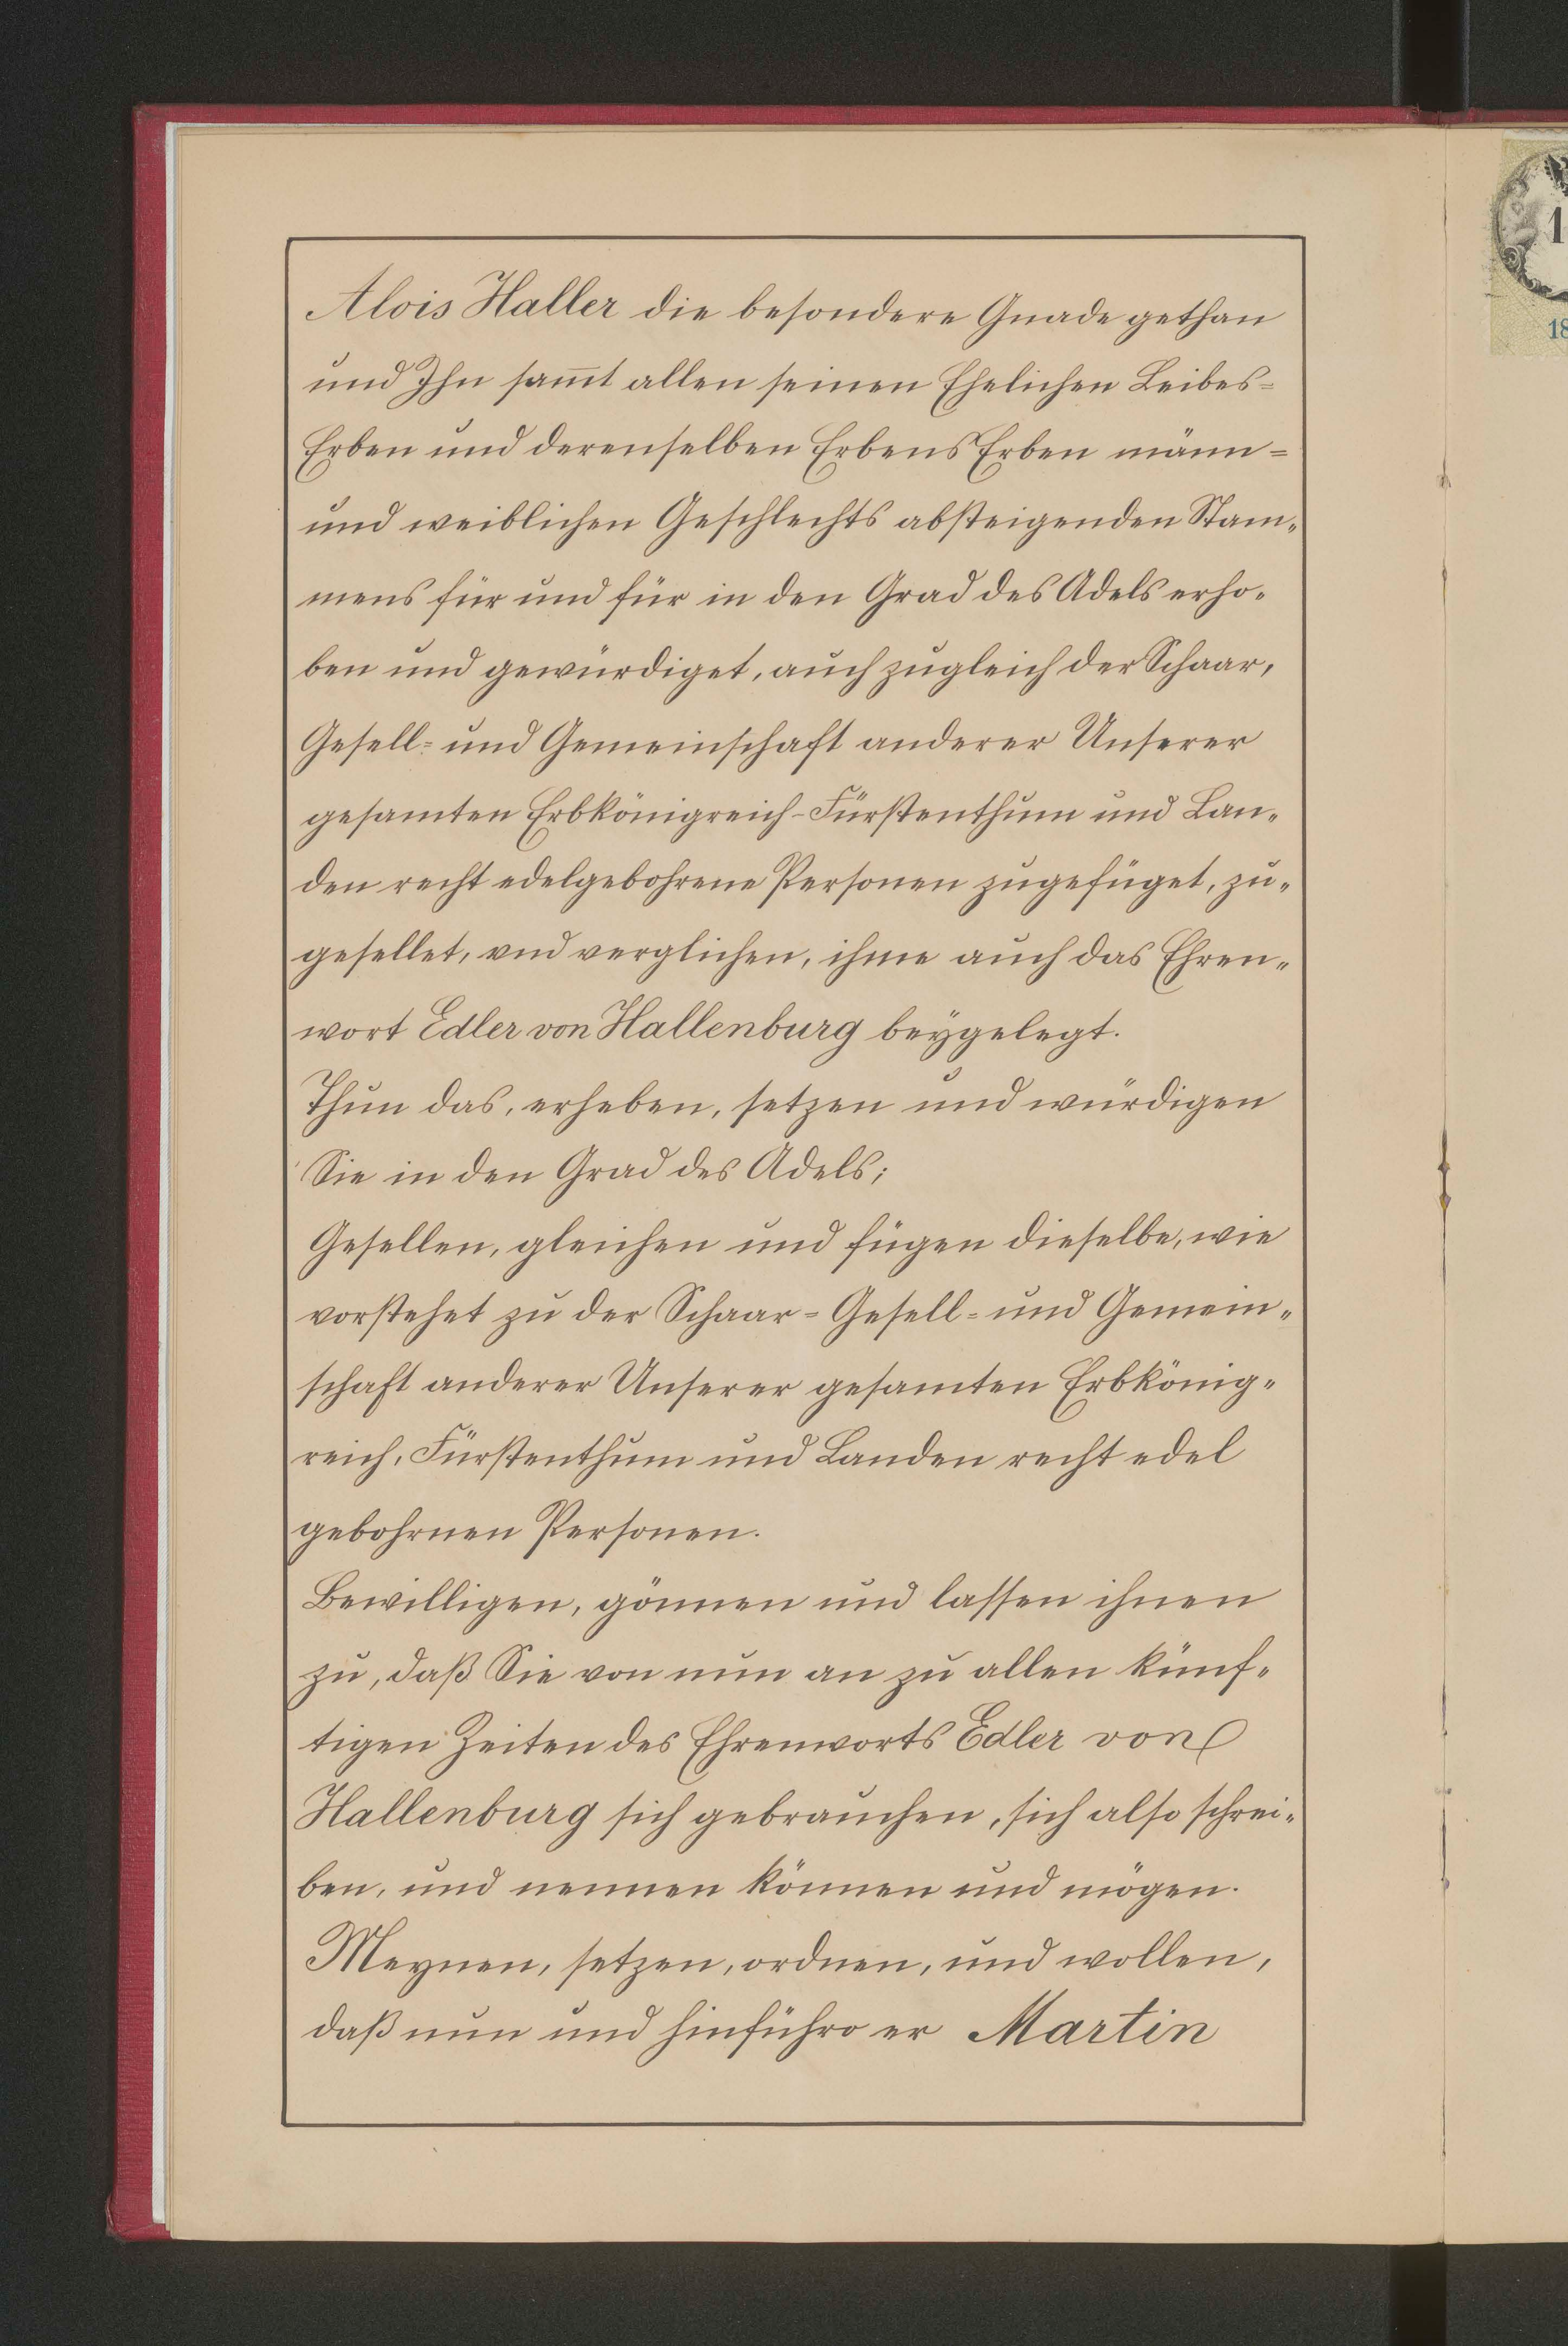 Alois Haller die besondere Gnade gethan
und Ihn sam̅t allen seinen Ehelichen Leibes=
Erben und derenselben ErbensErben männ=
und weiblichen Geschlechts absteigenden Stam„
mens für und für in den Grad des Adels erho„
ben und gewürdiget, auch zugleich der Schaar,
Gesell= und Gemeinschaft anderer Unserer
gesamten Erbkönigreich-Fürstenthum und Lan„
den recht edelgebohrene Personen zugefüget, zu„
gesellet, vnd verglichen, ihme auch das Ehren„
wort Edler von Hallenburg beÿgelegt.
Thun das, erheben, setzen und würdigen
Sie in den Grad des Adels;
Gesellen, gleichen und fügen dieselbe, wie
vorstehet zu der Schaar= Gesell= und Gemein„
schaft anderer Unserer gesamten Erbkönig„
reich, Fürstenthum und Landen recht edel
gebohrnen Personen.
Bewilligen, gönnen und lassen ihnen
zu, daß Sie von nun an zu allen künf„
tigen Zeiten des Ehrenworts Edler von
Hallenburg sich gebrauchen, sich also schrei„
ben, und nennen können und mögen.
Meynen, setzen, ordnen, und wollen,
daß nun und hinführo er Martin
1
18